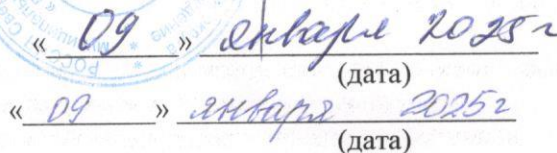 « 09 » января 2025г
(дата)
« 09 » января 2025г
(дата)